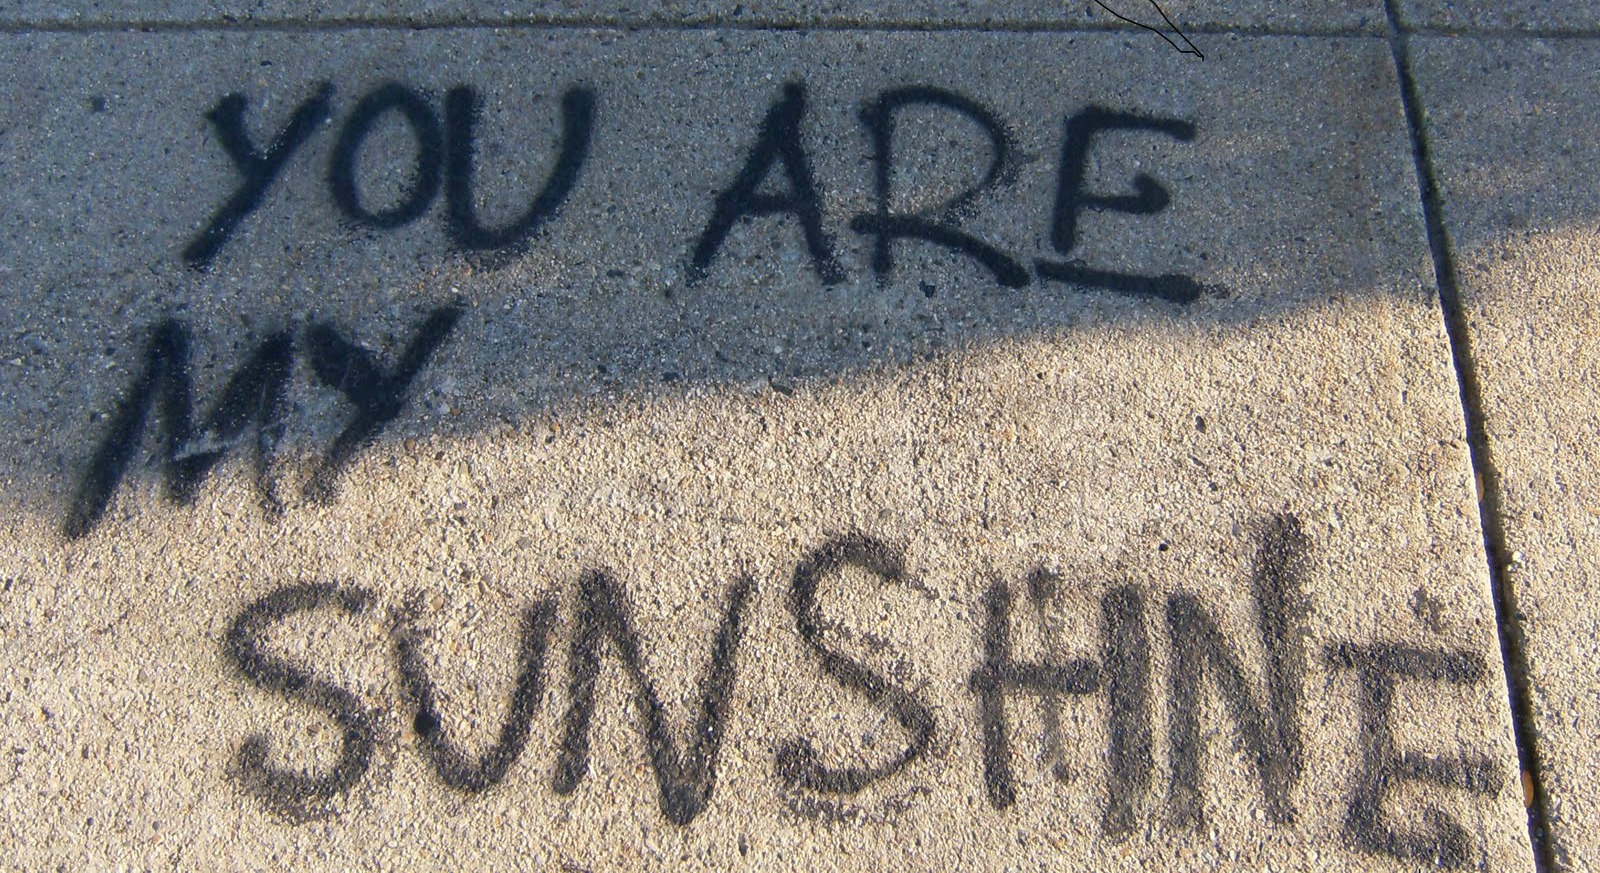 YOU ARE
MY
SUNSHINE